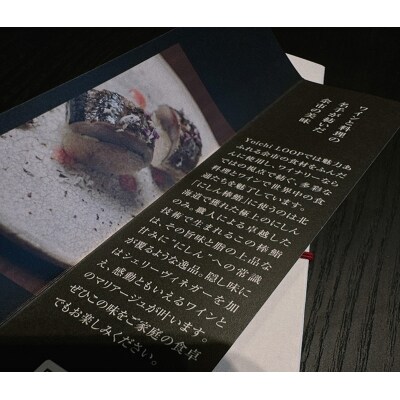 ワインと料理の
幸せが紡いだ
余市の美味
Yoichi LOOPでは魅力あ
ふれる余市の食材をふんだ
んに使用し、ワイナリーなら
ではの視点で紡ぐ、多彩な
料理とワインで世界中の食
通たちを魅了しています。
「にしん棒鮨」に使うのは北
海道で獲れた極上のにしん
のみ。職人による卓越した
技術で生まれるこの棒鮨
は、その旨味と脂の上品な
甘みに“にしん”への常識
が覆るような逸品。隠し味に
はシェリーヴィネガーを加
え、感動ともいえるワインと
のマリアージュが叶います。
ぜひこの味をご家庭の食卓
でもお楽しみください。